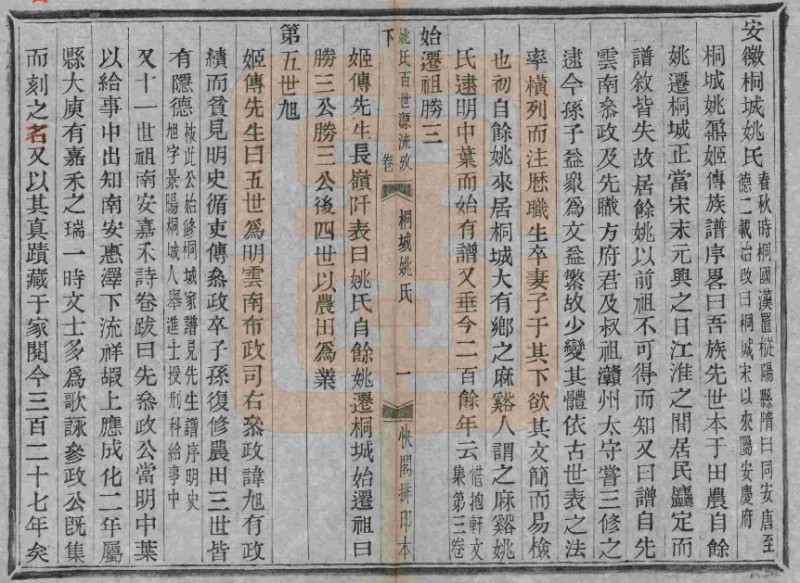 安徽桐城姚氏春秋時桐國漢置樅陽縣隋曰同安唐至
德二載始改曰桐城宋以來屬安慶府
桐城姚鼐姬傳族譜序畧曰吾族先世本于田農自餘
姚遷桐城正當宋末元興之日江淮之間居民鑪定而
譜敘皆失故居餘姚以前祖不可得而知又曰譜自先
雲南叅政及先職方府君及叔祖贛州太守嘗三修之
逮今孫子益眾為文益繁故少變其體依古世表之法
率橫列而注歷職生卒妻子于其下欲其文簡而易檢
也初自餘姚來居桐城大有鄉之麻谿人謂之麻谿姚
氏逮明中葉而始有譜又垂今二百餘年云惜抱軒文
集第三卷
始遷祖勝三
姚氏百世源流攷 卷下 桐城姚氏 一 快閣排印本
姬傳先生長嶺阡表曰姚氏自餘姚遷桐城始遷祖曰
勝三公勝三公後四世以農田為業
第五世旭
姬傳先生曰五世為明雲南布政司右叅政諱旭有政
績而貧見明史循吏傳叅政卒子孫復修農田三世皆
有隱德被此公始修桐城家譜見先生譜序明史
旭字景陽桐城人舉進士授刑科給事中
又十一世祖南安嘉禾詩卷跋曰先叅政公當明中葉
以給事中出知南安惠澤下流祥嘏上應成化二年屬
縣大庾有嘉禾之瑞一時文士多為歌詠叅政公既集
而刻之名又以其真蹟藏于家閱今三百二十七年矣